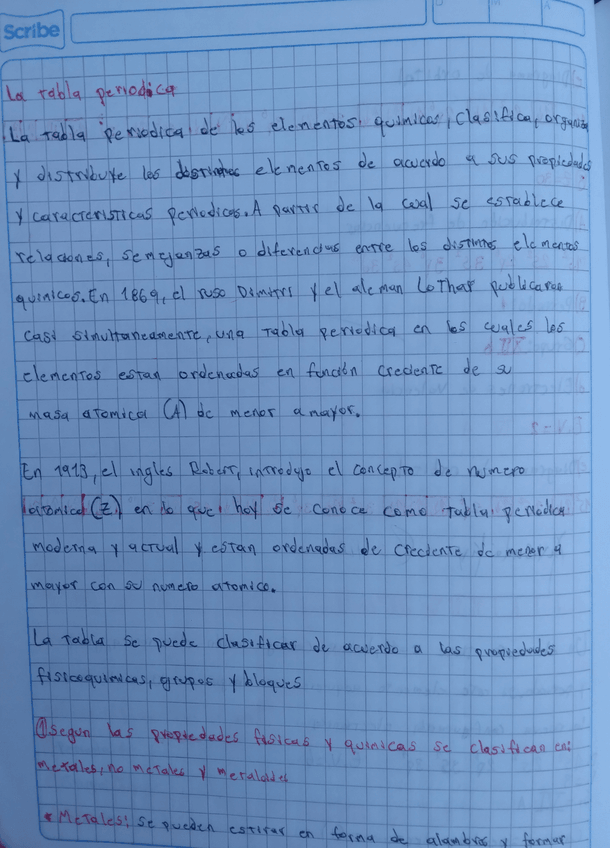 Scribe
D
M
A
La tabla periodica
La tabla periodica de los elementos quimicos, clasifica, organiza
y distribuye los distintos elementos de acuerdo a sus propiedades
y caracteristicas periodicas. A partir de la cual se establece
relaciones, semejanzas o diferencias entre los distintos elementos
quimicos. En 1869, el ruso Dimitri y el aleman Lothar publicaron
casi simultaneamente, una tabla periodica en los cuales los
elementos estan ordenadas en función creciente de a
masa atomica (A) de menor a mayor.
En 1913, el ingles Robert, introdujo el concepto de numero
atomico (Z) en lo que hoy se conoce como tabla periodica
moderna y actual y estan ordenadas de creciente de menor a
mayor con su numero atomico.
La tabla se puede clasificar de acuerdo a las propiedades
fisicoquimicas, grupos y bloques
① segun las propiedades fisicas y quimicas se clasifican en:
metales, no metales y metaloides
* Metales: se pueden estirar en forma de alambres y formar